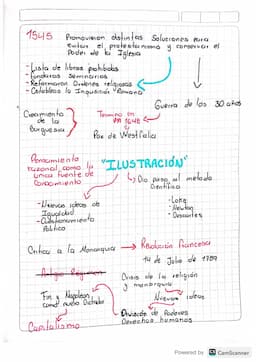 1545 Promovieron distintas Soluciones para
evitar el protestantismo y conservar el
Poder de la Iglesia
- Lista de libros prohibidos
- Fundaron Seminarios
- Reformaron Ordenes religiosas
- Establece la Inquisición "Romana"
Guerra de los 30 años
Crecimiento
de la
Burguesia
Termino en
en 1648
Paz de Westfalia
Pensamiento
racional como la
única fuente de
Conocimiento
"ILUSTRACIÓN"
Dio paso al método
Científico
- Nuevas ideas de
Igualdad
- Cuestionamiento
Político
- Loke
- Newton
- Descartes
Critica a la Monarquia
Revolución Francesa
14 de Julio de 1789
Antiguo Regimen
Crisis de la religión
y monarquia
Fin y Napoleon
como nuevo Dictador
Nuevas ideas
Capitalismo
División de Poderes
Derechos humanos
Powered by CS CamScanner